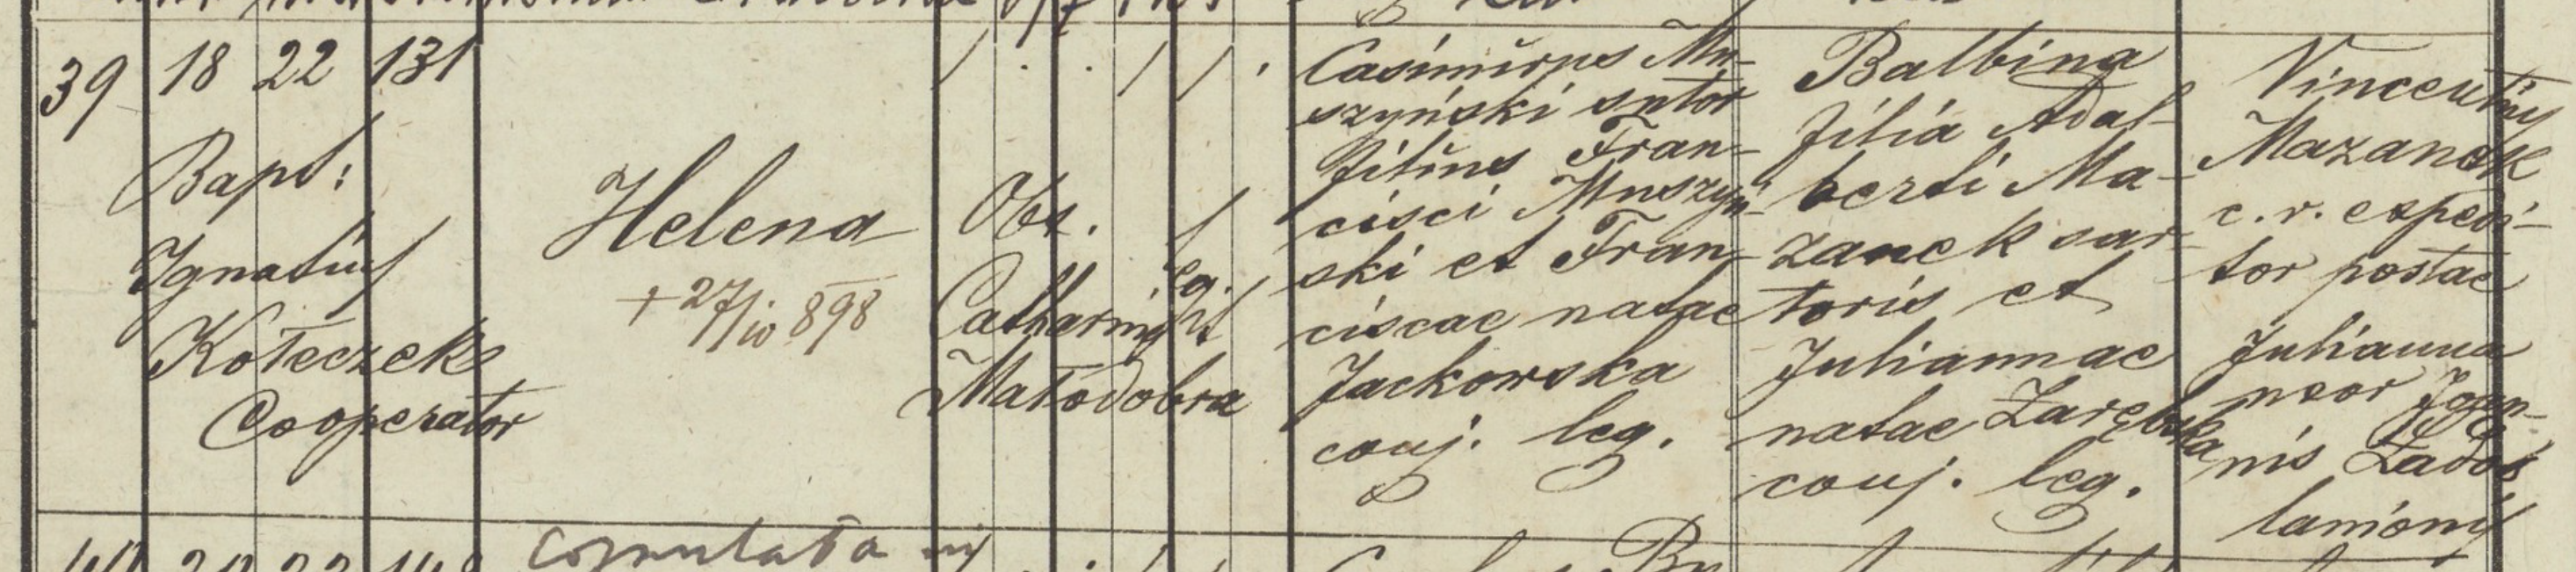 39 18 22 131
Bapt:
Ignatius
Koteczek
Cooperator
Helena
+ 27/10 898
Obs.
leg.
Catharina
Małodobra
Casimirus Mu-
szyński sutor
filius Fran-
cisci Muszyń-
ski et Fran-
ciscae natae
Jackowska
conj. leg.
Balbina
filia Adal-
berti Ma-
zanek sar-
toris et
Juliannae
natae Zarębska
conj. leg.
Vincentius
Mazanek
c. r. expedi-
tor postae
Julianna
uxor Joan-
nis
lanionis